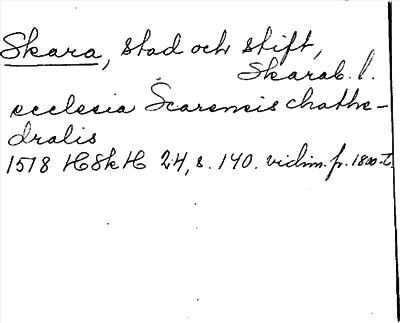 Skara, stad och stift,
Skarab. l.
ecclesia Scarensis chathe-
dralis
1518 HSkH 24, s. 140. vidim. fr. 1800-t.